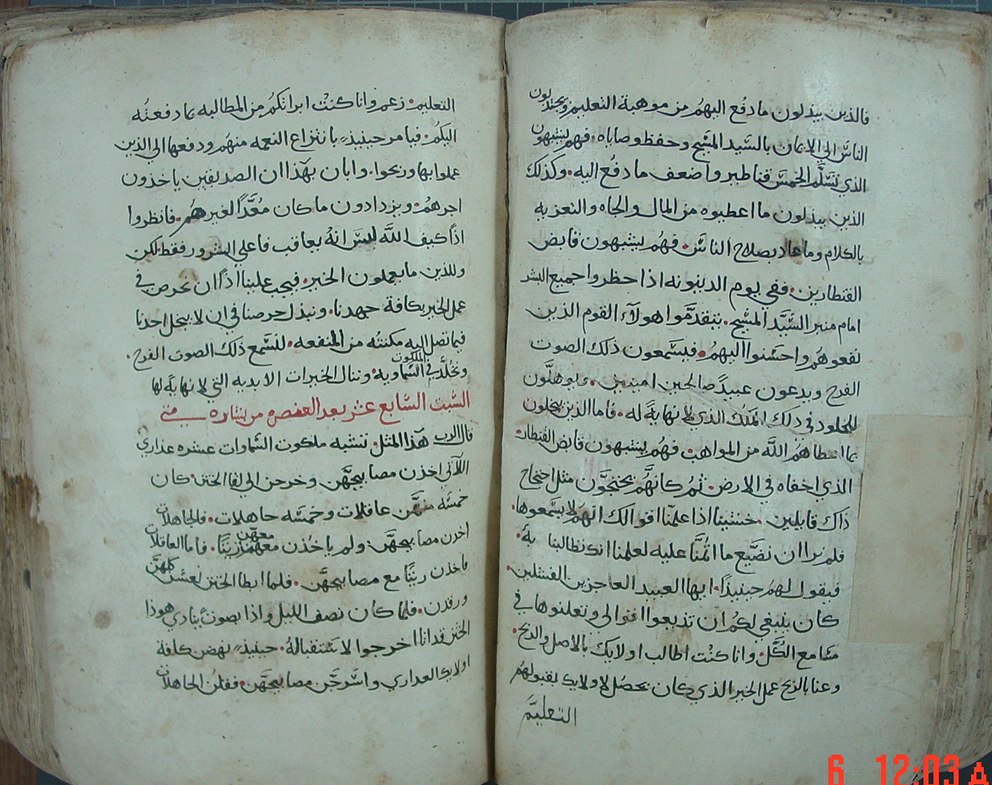 فالذين يبذلون ما دفع اليهم من موهبة التعليم ويجتذبون
الناس الي الايمان بالسيد المسيح وحفظ وصاياه. فهم يشبهون
الذي تسلم الخمس قناطير واضعف ما دفع اليه. وكذلك
الذين يبذلون ما اعطيوه من المال والجاه والتعزيه
بالكلام وما عاد بصلاح الناس. فهم يشبهون قابض
القنطارين. ففي يوم الدينونه اذا حظروا جميع البشر
امام منبر السيد المسيح. يتقدموا هولاء القوم الذين
نفعوهم واحسنوا اليهم. فيسمعون ذلك الصوت
الفرح ويدعون عبيدًا صالحين امينين. ويوهلون
للخلود في ذلك الملك الذي لا نهاية له. فاما الذين يبخلون
بما اعطاهم الله من المواهب فهم يشبهون قابض القنطار
الذي اخفاه في الارض. ثم كانهم يحتجون مثل احتجاج
ذاك قايلين. خشينا اذا علمنا اقوالك انهم لا يسمعوها.
فلم نرا ان نضيع ما اتمنا عليه لعلمنا انك تطالبنا به.
فيقول لهم حينيذًا. ايها العبيد العاجزين الفشلين.
كان ينبغي لكم ان تذيعوا اقوالي وتعلنوها في
مسامع الكل. وانا كنت اطالب اولايك بالاصل والربح.
وعنا بالربح عمل الخير الذي كان يحصل لاولايك بقبولهم
التعليم
التعليم. زعم وانا كنت ابرانكم من المطالبه بما دفعته
اليكم. فيامر حينيذٍ بانتزاع النعمه منهم ودفعها الي الذين
عملوا بها وربحوا. وابان بهذا ان الصديقين ياخذون
اجرهم. ويزدادون ما كان معدًا لغيرهم. فانظروا
اذًا كيف الله ليس انه يعاقب فاعلي الشرور فقط لكن
وللذين ما يعملون الخير. فيجب علينا اذًا ان نحرص في
عمل الخير بكافة جهدنا. ونبذل حرصنا في ان لا يبخل احدنا
فيما تصل اليه مكنته من المنفعه. لنسمع ذلك الصوت الفرح.
ونخلد في الملكوت السماويه وننال الخيرات الابديه التي لا نهاية لها
السبت السابع عشر بعد العنصره من بشارة متي
قال الرب هذا المثل. تشبه ملكوت السماوات عشره عذاري
اللاتي اخذن مصابيحهن وخرجن الي لقا الختن. كان
خمسه منهن عاقلات وخمسه جاهلات. فالجاهلات
اخذن مصابيحهن ولم ياخذن معهن زيتًا. فاما العاقلات
فاخذن زيتًا مع مصابيحهن. فلما ابطا الختن نعسن كلهن
ورقدن. فلما كان نصف الليل واذا بصوت ينادي هوذا
الختن قد اتا اخرجوا لاستقباله. حينيذٍ نهض كافة
اولايك العداري واسرجن مصابيحهن. فقلن الجاهلات
6 12:03 A